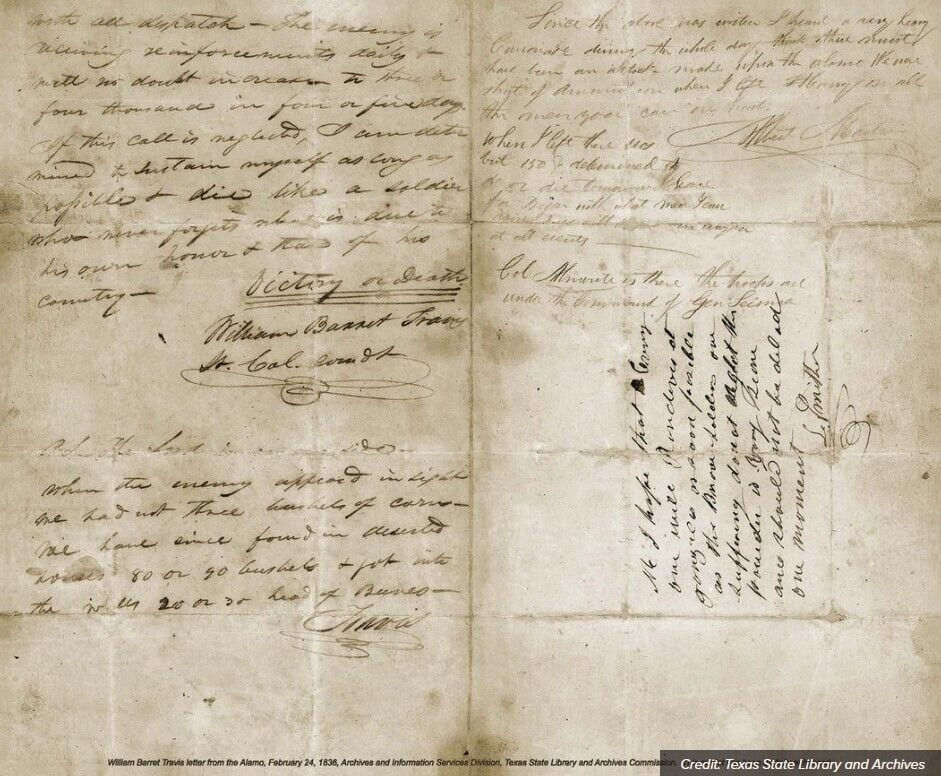 with all dispatch – The enemy is
receiving reinforcements daily &
will no doubt increase to three or
four thousand in four or five days.
If this call is neglected, I am deter
mined to sustain myself as long as
possible & die like a soldier
who never forgets what is due to
his own honor & that of his
country –
Victory or Death
William Barret Travis
Lt. Col. comdt
P.S. The Lord is on our side –
When the enemy appeared in sight
we had not three bushels of corn –
we have since found in deserted
houses 80 or 90 bushels & got into
the walls 20 or 30 head of Beeves –
Travis
Since the above was written I heard a very heavy
Canonade during the whole day think there must
have been an attack made upon the alamo We were
short of when I left Hurry on all
the men you can
Albert Martin
When I left there was
but 150 determined to
do or die tomorrow I leave
for with what men I can
at all events
Col Almonte is there the troops are
under the Command of Gen Seisma
Nb I hope that Every
one will Randeves at
gonzales as soon poseble
as the Brave Soldiers are
suffering do not neglect the
powder is very scarce
and should not be delad
one moment
L. Smither
William Barret Travis letter from the Alamo, February 24, 1836, Archives and Information Services Division, Texas State Library and Archives Commission.
Credit: Texas State Library and Archives